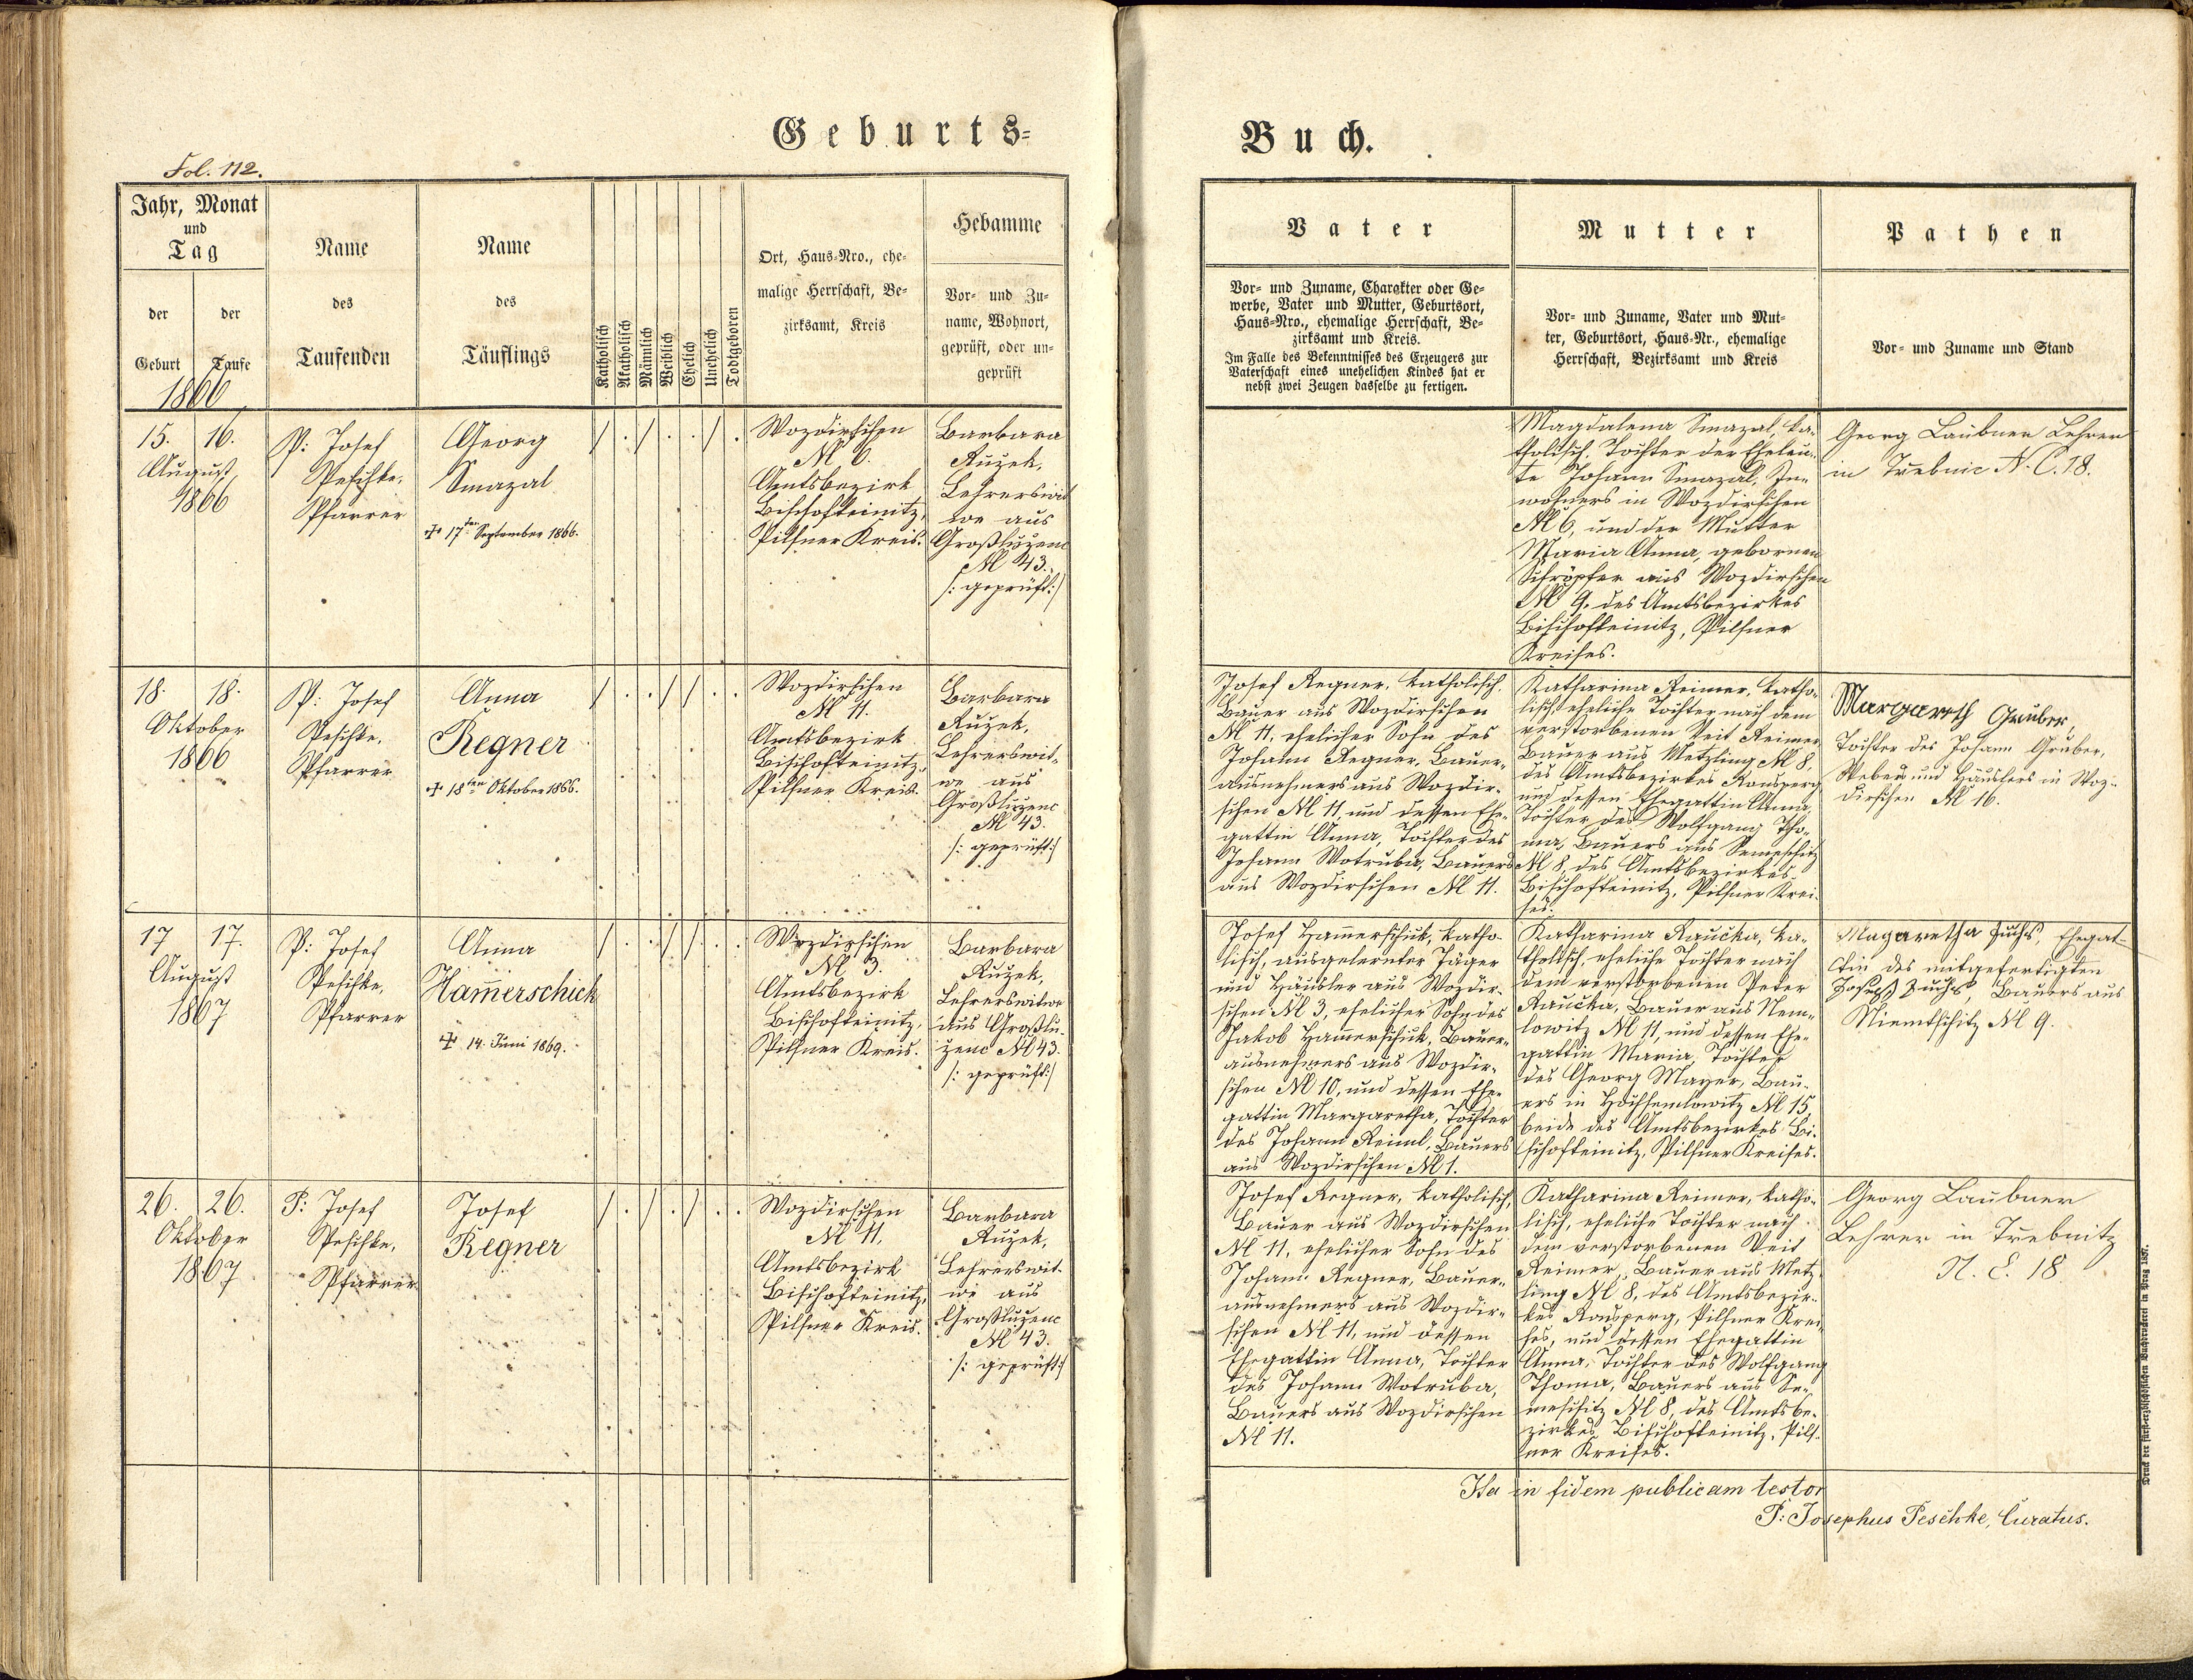 Geburts-
Buch.
Fol. 112.
Jahr, Monat
und
Tag
der
Geburt
der
Taufe
1866
Name
des
Taufenden
Name
des
Täuflings
Katholisch
Akatholisch
Männlich
Weiblich
Ehelich
Unehelich
Todtgeboren
Ort, Haus-Nro., ehe-
malige Herrschaft, Be-
zirksamt, Kreis
Hebamme
Vor- und Zu-
name, Wohnort,
geprüft, oder un-
geprüft
Vater
Vor- und Zuname, Charakter oder Ge-
werbe, Vater und Mutter, Geburtsort,
Haus-Nro., ehemalige Herrschaft, Be-
zirksamt und Kreis.
Im Falle des Bekenntnisses des Erzeugers zur
Vaterschaft eines unehelichen Kindes hat er
nebst zwei Zeugen dasselbe zu fertigen.
Mutter
Vor- und Zuname, Vater und Mut-
ter, Geburtsort, Haus-Nr., ehemalige
Herrschaft, Bezirksamt und Kreis
Pathen
Vor- und Zuname und Stand
15. 16.
August
1866
P: Josef
Peschke,
Pfarrer
Georg
Smazal
✠ 17ten September 1866.
/ . / . . / .
Wozdirschen
N 6.
Amtsbezirk
Bischofteinitz,
Pilsner Kreis.
Barbara
Ružek,
Lehrerswit
we aus
Großluzenc
N 43.
/: geprüft :/
Magdalena Smazal, ka-
tholisch, Tochter der Eheleu-
te Johann Smazal, In-
wohners in Wozdirschen
N 6, und der Mutter
Maria Anna, gebornen
Schröpfer aus Wozdirschen
N 9. des Amtsbezirkes
Bischofteinitz, Pilsner
Kreises.
Georg Laubner Lehrer
in Trebnic N. C. 18.
18. 18.
Oktober
1866
P: Josef
Peschke,
Pfarrer
Anna
Regner
✠ 18ten Oktober 1866.
/ . . / / . .
Wozdirschen
N 11.
Amtsbezirk
Bischofteinitz,
Pilsner Kreis.
Barbara
Ružek,
Lehrerswit-
we aus
Großluzenc
N 43.
/: geprüft :/
Josef Regner, katholisch,
Bauer aus Wozdirschen
N 11, ehelicher Sohn des
Johann Regner, Bauer-
ausnehmers aus Wozdir-
schen N 11, und dessen Ehe-
gattin Anna, Tochter des
Johann Wotruba, Bauers
aus Wozdirschen N 11.
Katharina Reimer, katho-
lisch, eheliche Tochter nach dem
verstorbenen Veit Reimer
Bauer aus Metzling N 8,
des Amtsbezirkes Ronsperg
und dessen Ehegattin Anna,
Tochter des Wolfgang Tho-
ma, Bauers aus Semeschitz
N 8, des Amtsbezirkes
Bischofteinitz, Pilsner Krei-
ses.
Margareth Gruber,
Tochter des Johann Gruber,
Weber und Häuslers in Woz-
dirschen N 16.
17 17.
August
1867
P: Josef
Peschke,
Pfarrer
Anna
Ham̄erschick
✠ 14. Juni 1869.
/ . . / / . .
Wozdirschen
N 3.
Amtsbezirk
Bischofteinitz,
Pilsner Kreis.
Barbara
Ružek,
Lehrerswitwe
aus Großlu-
zenc N 43.
/: geprüft :/
Josef Ham̄erschick, katho-
lisch, ausgelernter Jäger
und Häusler aus Wozdir-
schen N 3, ehelicher Sohn des
Jakob Ham̄erschick, Bauer-
ausnehmers aus Wozdir-
schen N 10, und dessen Ehe-
gattin Margaretha, Tochter
des Johann Reiml, Bauers
aus Wozdirschen N 1.
Katharina Raučka, ka-
tholisch, eheliche Tochter nach
dem verstorbenen Peter
Raučka, Bauer aus Nem-
lowitz N 11, und dessen Ehe-
gattin Maria, Tochter
des Georg Mayer, Bau-
ers in Hochsemlowitz N 15
beide des Amtsbezirkes Bi-
schofteinitz, Pilsner Kreises.
Magaretha Fuchs, Ehegat-
tin des mitgefertigten
Joseph Fuchs, Bauers aus
Niemtschitz N 9.
26. 26.
Oktober
1867
P: Josef
Peschke,
Pfarrer
Josef
Regner
/ . / . / . .
Wozdirschen
N 11,
Amtsbezirk
Bischofteinitz,
Pilsner Kreis.
Barbara
Ružek,
Lehrerswit-
we aus
Großluzenc
N 43.
/: geprüft :/
Josef Regner, katholisch,
Bauer aus Wozdirschen
N 11, ehelicher Sohn des
Johann Regner, Bauer-
ausnehmers aus Wozdir-
schen N 11, und dessen
Ehegattin Anna, Tochter
des Johann Wotruba,
Bauers aus Wozdirschen
N 11.
Katharina Reimer, katho-
lisch, eheliche Tochter nach
dem verstorbenen Veit
Reimer, Bauer aus Metz-
ling N 8, des Amtsbezir-
kes Ronsperg, Pilsner Krei-
ses, und dessen Ehegattin
Anna, Tochter des Wolfgang
Thoma, Bauers aus Se-
meschitz N 8, des Amtsbe-
zirkes Bischofteinitz, Pils-
ner Kreises.
Georg Laubner
Lehrer in Trebnitz
N. C. 18
Ita in fidem publicam testor
P: Josephus Peschke, Curatus.
Druck der fürst-erzbischöflichen Buchdruckerei in Prag 1857.